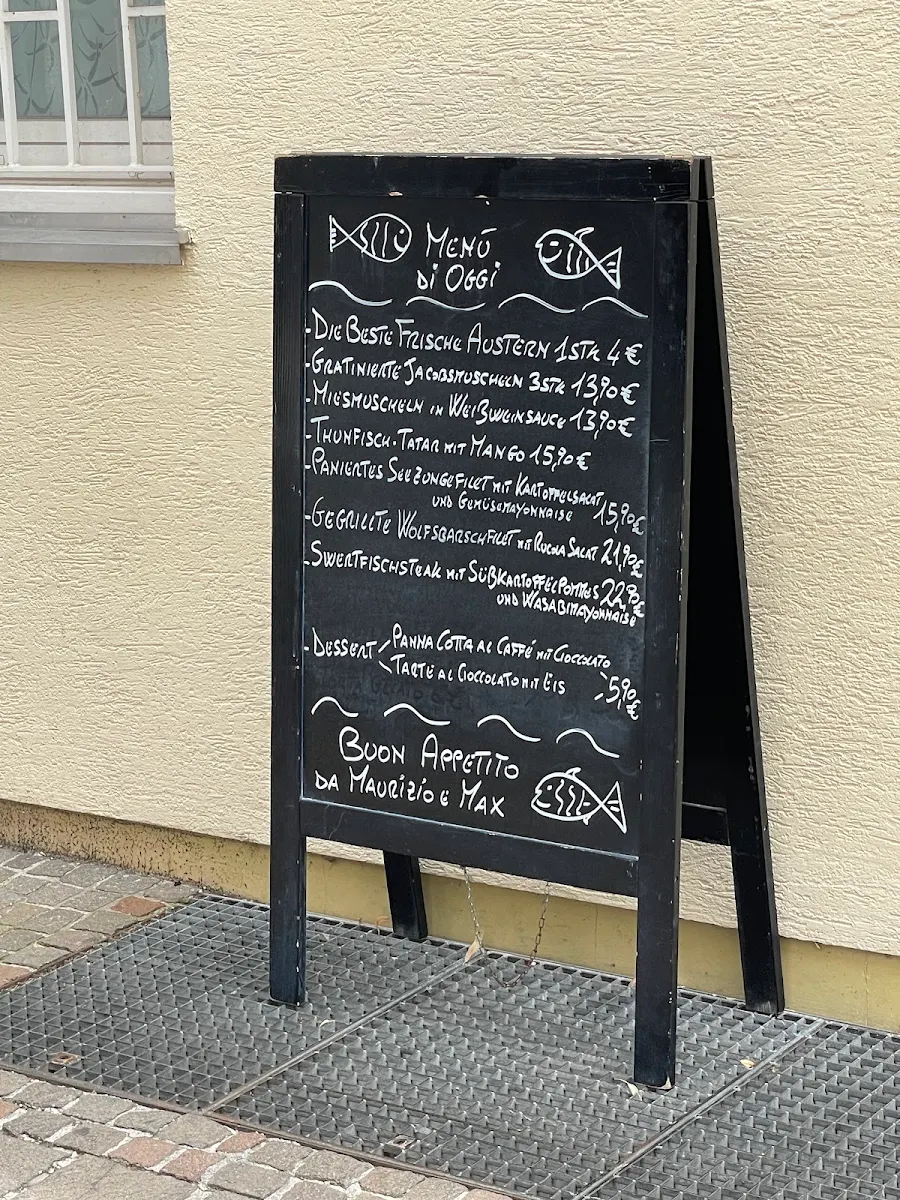 MENÚ
Di OGGi
-DIE BESTE FRISCHE AUSTERN 1STK 4 €
-GRATINIERTE JACOBSMUSCHELN 3STK 13,90 €
-MIESMUSCHELN IN WEIßWEINSAUCE 13,90 €
-THUNFISCH-TATAR MIT MANGO 15,90 €
-PANIERTES SEEZUNGEFILET MIT KARTOFFELSALAT 15,90 €
UND GEMÜSEMAYONNAISE
-GEGRILLTE WOLFSBARSCHFILET MIT RUCOLA SALAT 21,90 €
-SWERTFISCHSTEAK MIT SÜßKARTOFFELPOMMES 22,90 €
UND WASABIMAYONNAISE
-DESSERT PANNA COTTA AL CAFFÉ MIT CIOCCOLATO
TARTE AL CIOCCOLATO MIT EIS 5,90 €
BUON APPETITO
DA MAURiZiO E MAX